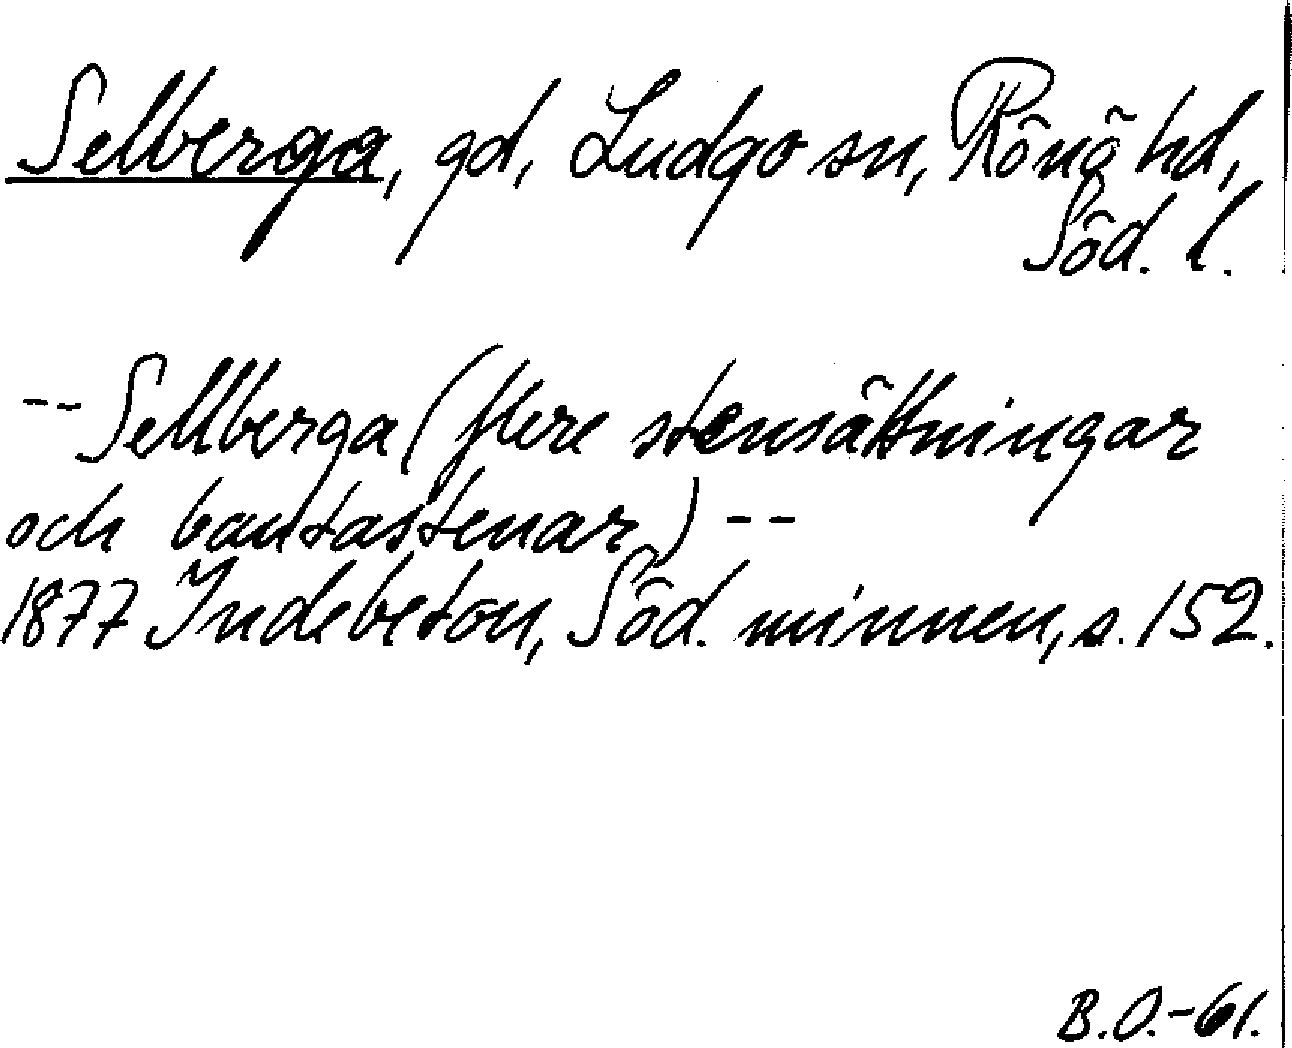 Selberga, gd, Ludgo sn, Rönö hd,
Söd. l.
-- Sellberga (flere stensättningar
och bautastenar) --
1877 Indebetou, Söd. minnen, s. 152.
B.O.-61.